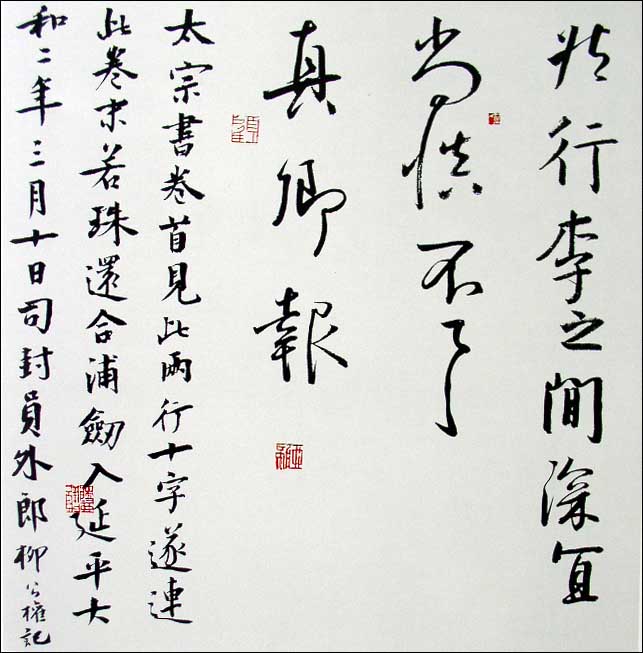 行李之間深冝
尚慎不
真卿報
太宗書卷首見此兩行十字遂連
此卷末若珠還合浦劒入延平大
和二年三月十日司封員外郎柳公權記